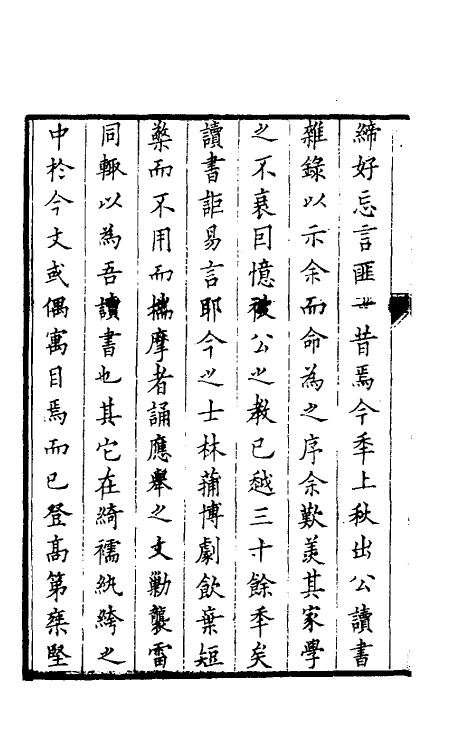 締好忘言匪一世昔焉今年上秋出公讀書
雜錄以示余而命為之序余歎羡其家學
之不衰囙憶公之教已越三十餘年矣
讀書詎易言耶今之士林蒲博劇飲棄短
檠而不用而揣摩者誦應舉之文勦襲雷
同輒以為吾讀書也其它在綺襦紈絝之
中於今文或偶寓目焉而已登髙第槖堅